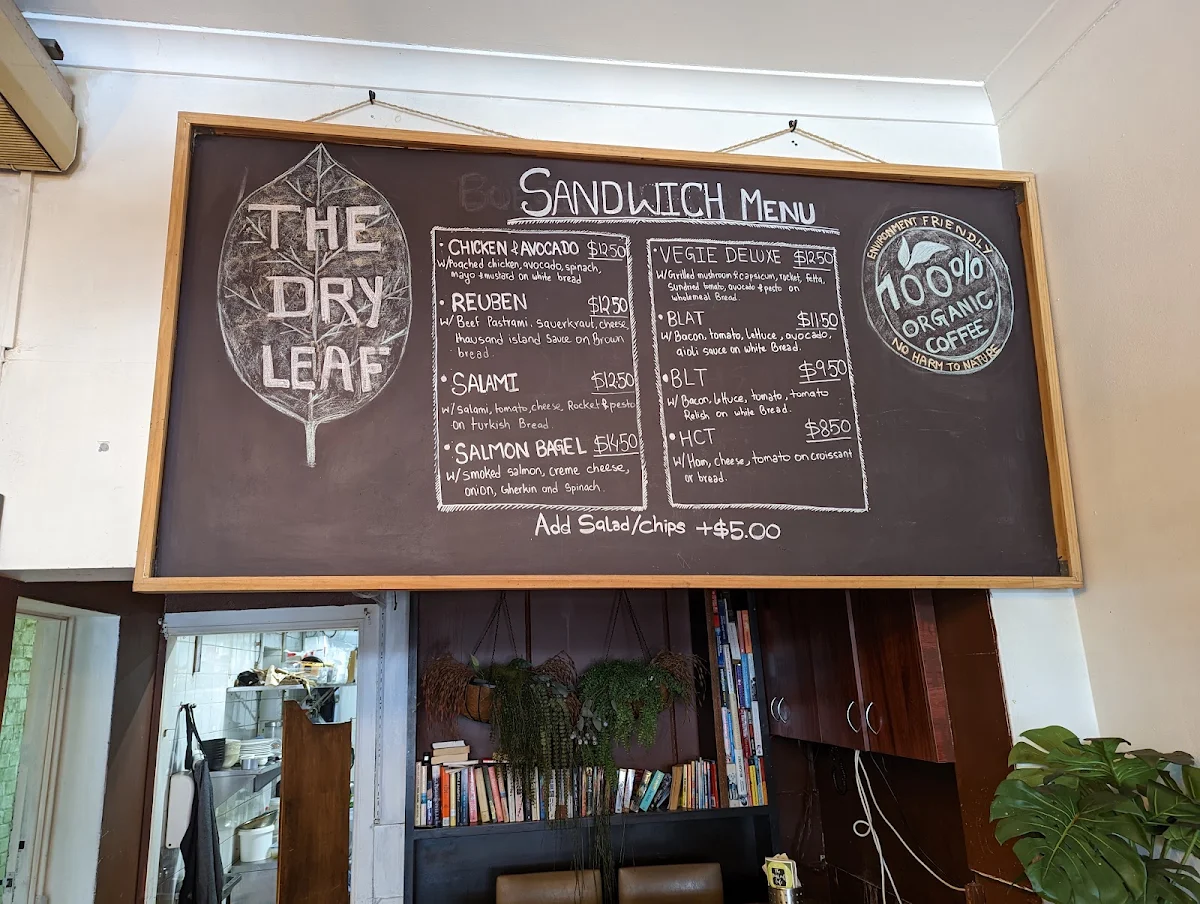 THE
DRY
LEAF
SANDWICH MENU
• CHICKEN & AVOCADO $12.50
w/Poached chicken, avocado, spinach,
mayo + mustard on white bread
• REUBEN $12.50
w/ Beef Pastrami, sauerkraut, cheese,
thousand island sauce on Brown
bread.
• SALAMI $12.50
w/Salami, tomato, cheese, Rocket & pesto
on turkish Bread.
• SALMON BAGEL $14.50
w/smoked salmon, creme cheese,
onion, Gherkin and Spinach.
• VEGIE DELUXE $12.50
w/Grilled mushroom & capsicum, rocket, fetta,
Sundried tomato, avocado & pesto on
wholemeal Bread.
• BLAT $11.50
w/Bacon, tomato, lettuce, avocado,
aioli sauce on white Bread.
• BLT $9.50
w/ Bacon, lettuce, tomato, tomato
Relish on white Bread.
• HCT $8.50
w/ Ham, cheese, tomato on croissant
or bread.
Add Salad/chips +$5.00
ENVIRONMENT FRIENDLY
100%
ORGANIC
COFFEE
NO HARM TO NATURE